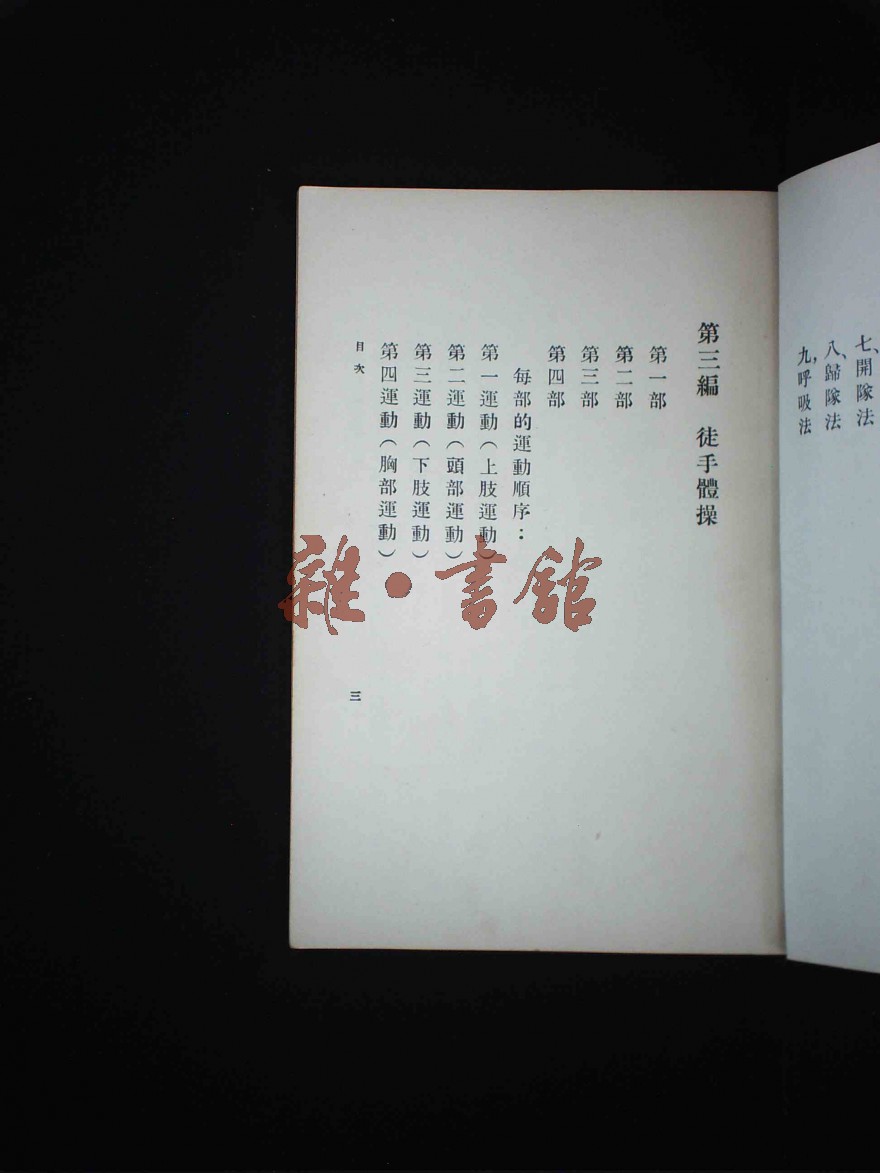 七、開隊法
八、歸隊法
九，呼吸法
第三編　徒手體操
第一部
第二部
第三部
第四部
每部的運動順序：
第一運動（上肢運動）
第二運動（頭部運動）
第三運動（下肢運動）
第四運動（胸部運動）
目次
三
雜·書館